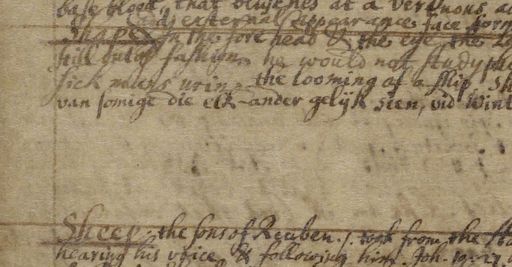 base blood, that blushes at a verdnous, a
& external appearance face form
Shape in the fore head & the eye the
still out of fashion. he would not study
sick mans urin the looming of a ship. Sh
van somige die elk-ander gelijk sien, vid Wint
Sheep, the sons of Reuben. took from the
hearing his voice & following him. Joh. 10.27